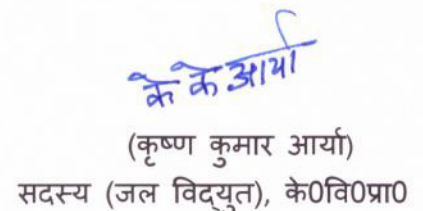 के के आर्या
(कृष्ण कुमार आर्या)
सदस्य (जल विद्युत), के0वि0प्रा0